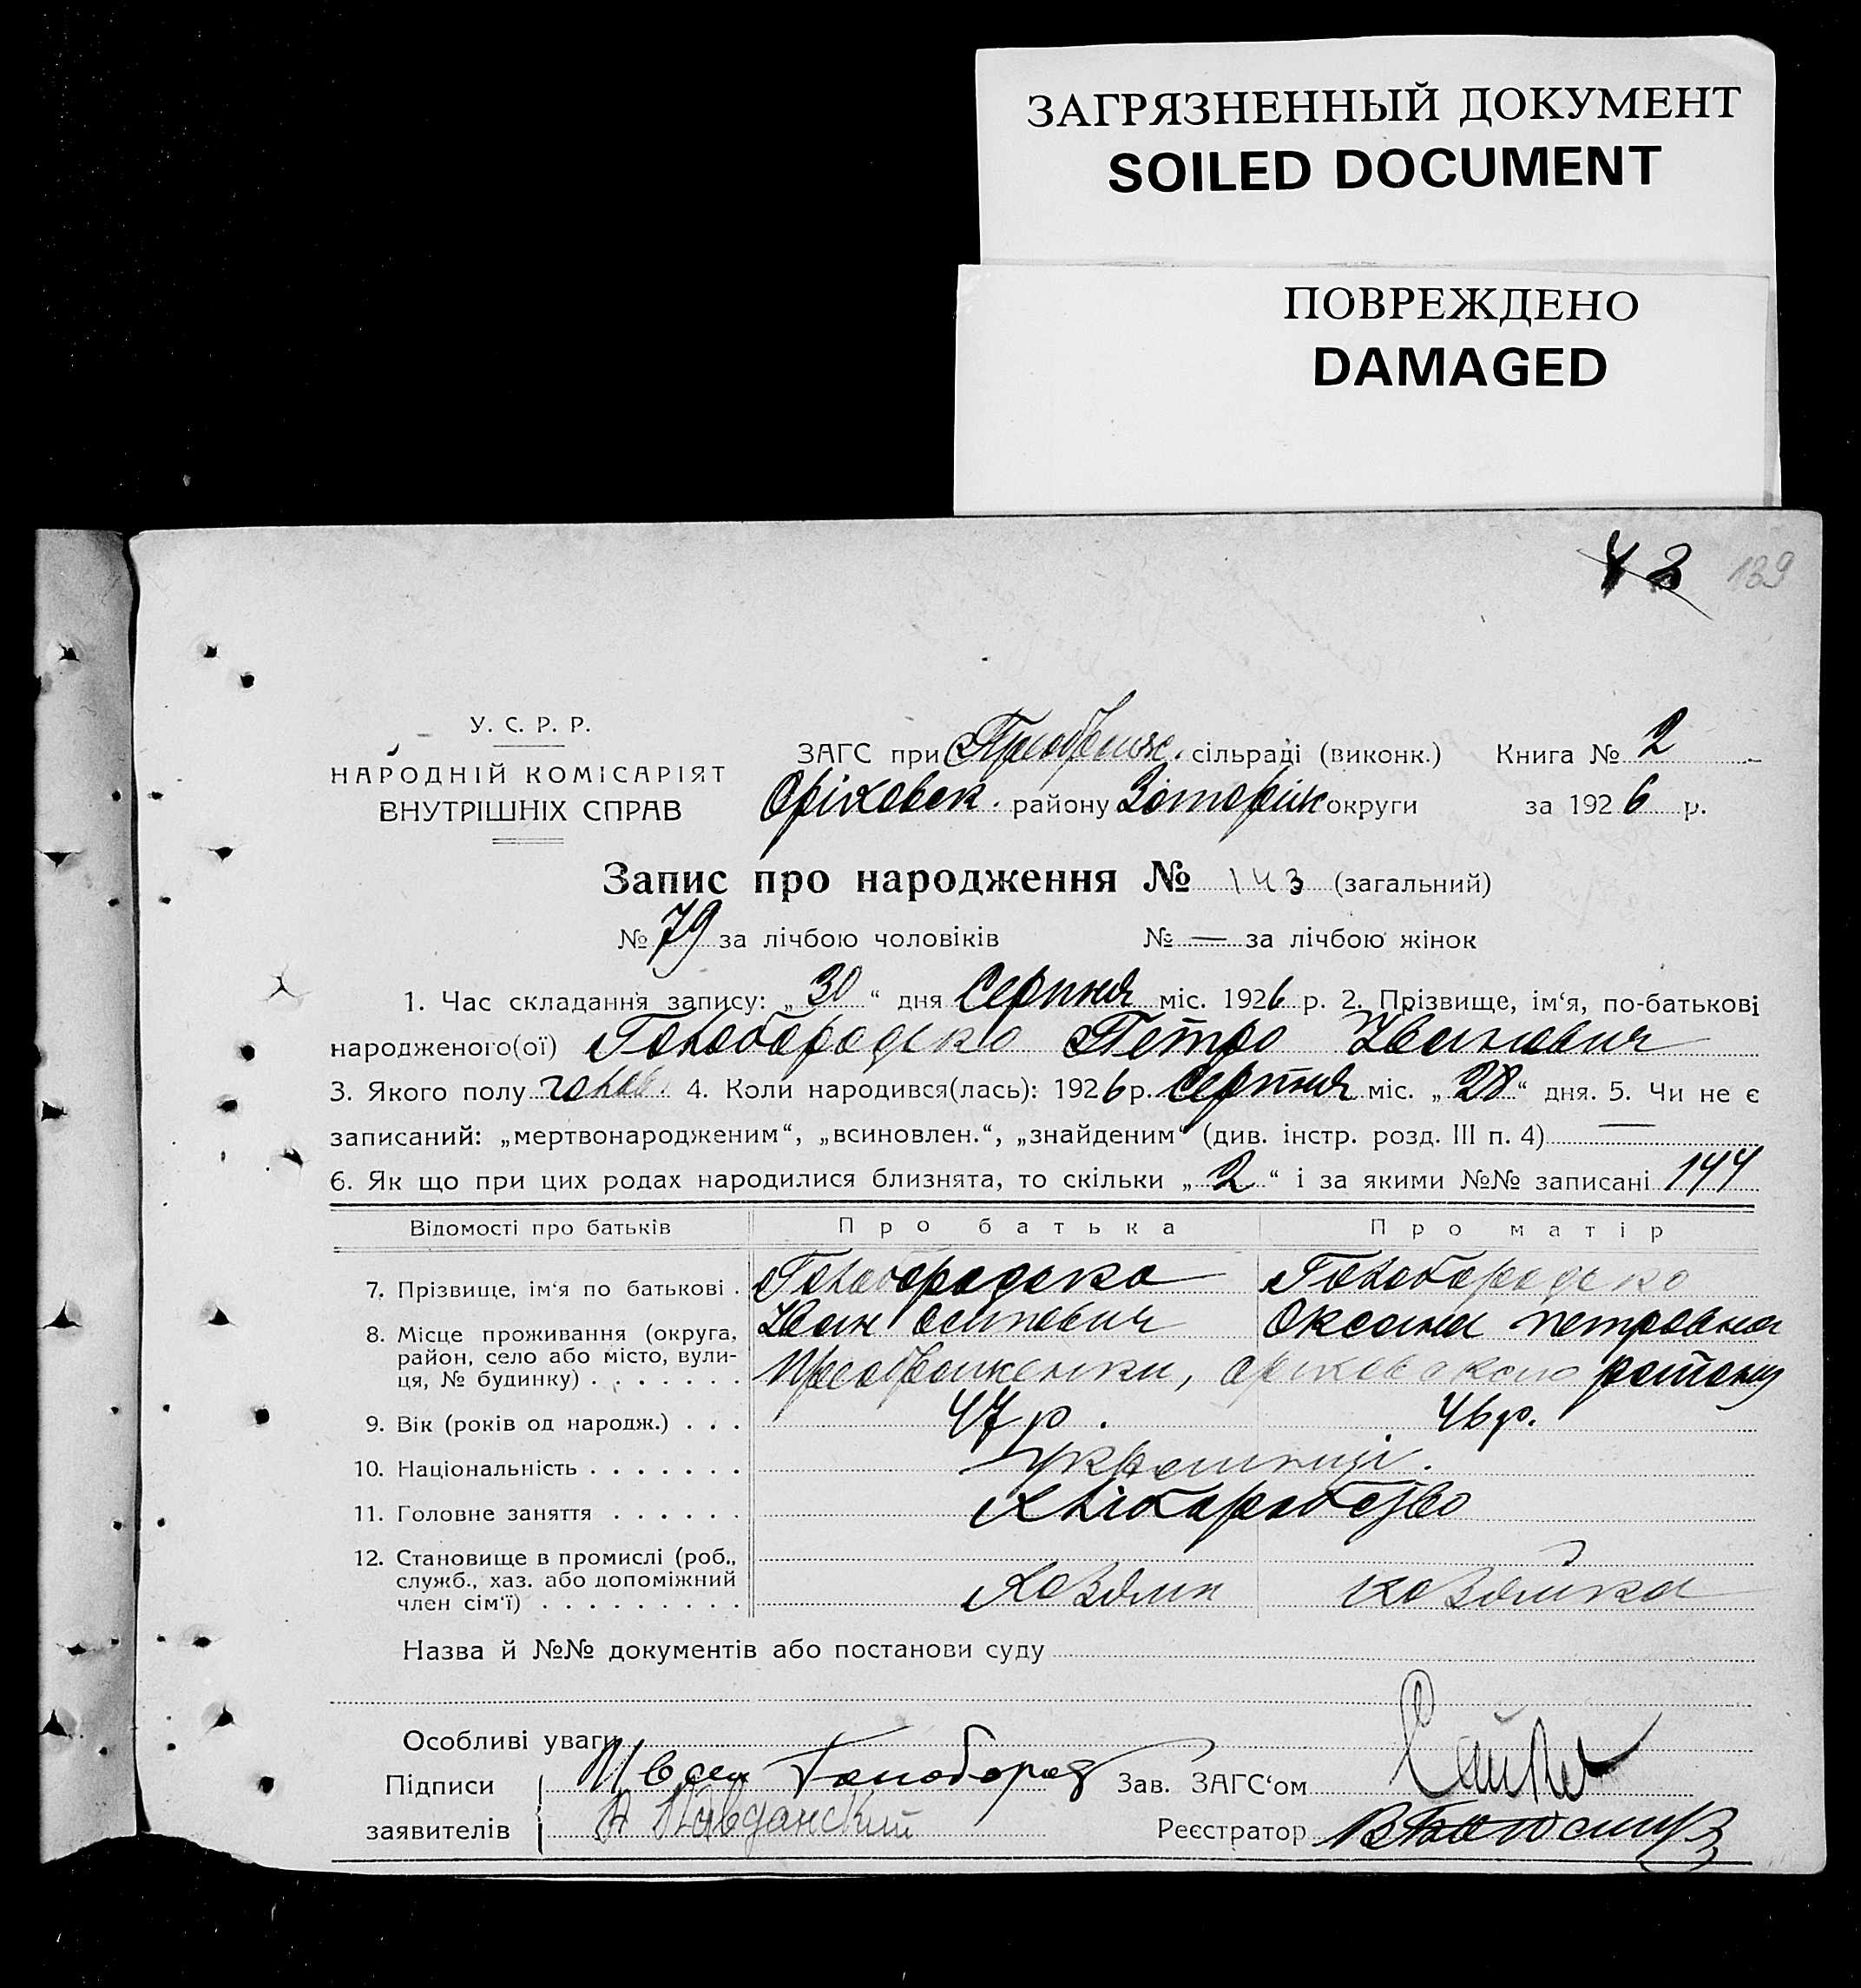 ЗАГРЯЗНЕННЫЙ ДОКУМЕНТ
SOILED DOCUMENT
ПОВРЕЖДЕНО
DAMAGED
42 139
У. С. Р. Р.
НАРОДНІЙ КОМІСАРІЯТ
ВНУТРІШНІХ СПРАВ
ЗАГС при Преображ. сільраді (виконк.) Книга № 2
Оріховск. району Запоріж округи за 1926 р.
Запис про народження № 143 (загальний)
№ 79 за лічбою чоловіків № — за лічбою жінок
1. Час складання запису: „30“ дня Серпня міс. 1926 р. 2. Прізвище, ім‘я, по-батькові
народженого(ої) Голобородько Петро Іванович
3. Якого полу чолов. 4. Коли народився(лась): 1926 р. Серпня міс. „28“ дня. 5. Чи не є
записаний: „мертвонародженим“, „всиновлен.“, „знайденим“ (див. інстр. розд. III п. 4) —
6. Як що при цих родах народилися близнята, то скільки „2“ і за якими №№ записані 144
Відомості про батьків Про батька Про матір
7. Прізвище, ім‘я по батькові . Голобородько Голобородько
Іван Осипович Оксана Петровна
8. Місце проживання (округа, район, село або місто, вули-
ця, № будинку) . . . . . . . Преображенки, оріховского району
9. Вік (років од народж.) . . . 47 р. 46 р.
10. Національність . . . . . . . українці.
11. Головне заняття . . . . . . Хліборобство
12. Становище в промислі (роб.,
служб., хаз. або допоміжний
член сім‘ї) . . . . . . . . . Хозяин хозяйка
Назва й №№ документів або постанови суду
Особливі уваги
Підписи Иван Голобород Зав. ЗАГС‘ом
заявителів Реєстратор